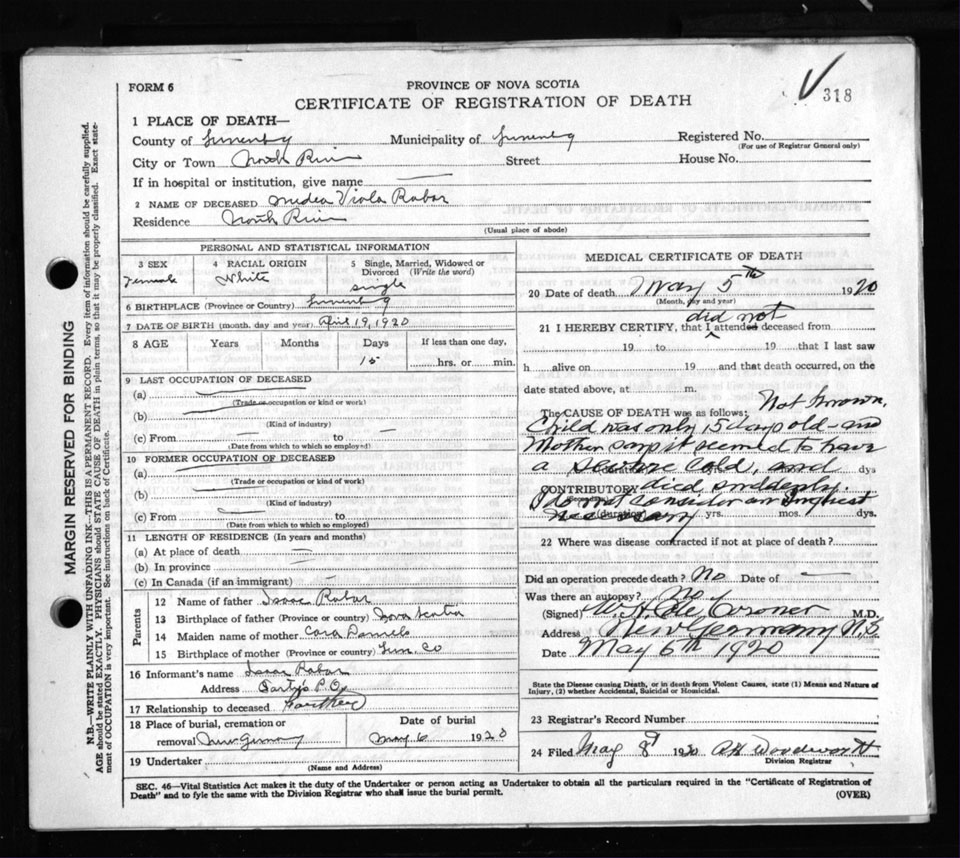 318
FORM 6
PROVINCE OF NOVA SCOTIA
CERTIFICATE OF REGISTRATION OF DEATH
1 PLACE OF DEATH—
County of Lunenbg Municipality of Lunenbg Registered No.
(For use of Registrar General only)
City or Town North River Street House No.
If in hospital or institution, give name
2 NAME OF DECEASED Viola Rabar
Residence North River
(Usual place of abode)
PERSONAL AND STATISTICAL INFORMATION
3 SEX 4 RACIAL ORIGIN 5 Single, Married, Widowed or
Divorced (Write the word)
Female White single
6 BIRTHPLACE (Province or Country) Lunenbg
7 DATE OF BIRTH (month, day and year) April 19, 1920
8 AGE Years Months Days If less than one day,
15 hrs. or min.
9 LAST OCCUPATION OF DECEASED
(a)
(Trade or occupation or kind or work)
(b)
(Kind of industry)
(c) From to
(Date from which to which so employed)
10 FORMER OCCUPATION OF DECEASED
(a)
(Trade or occupation or kind or work)
(b)
(Kind of industry)
(c) From to
(Date from which to which so employed)
11 LENGTH OF RESIDENCE (In years and months)
(a) At place of death
(b) In province
(c) In Canada (if an immigrant)
Parents
12 Name of father Isaac Rabar
13 Birthplace of father (Province or country) Nova Scotia
14 Maiden name of mother Cora Daniels
15 Birthplace of mother (Province or country) Lun. Co
16 Informant's name Isaac Rabar
Address P.O.
17 Relationship to deceased Father
18 Place of burial, cremation or Date of burial
removal New Germany May 6 1920
19 Undertaker
(Name and Address)
MEDICAL CERTIFICATE OF DEATH
20 Date of death May 5th 1920
(Month, day and year)
did not
21 I HEREBY CERTIFY, that I attended deceased from
19 to 19 that I last saw
h alive on 19 and that death occurred, on the
date stated above, at m.
The CAUSE OF DEATH was as follows: Not known.
Child was only 15 days old – and
Mother says it seemed to have
a severe Cold, and dys
CONTRIBUTORY died suddenly.
I do not consider an Inquest
necessary (duration) yrs. mos. dys.
22 Where was disease contracted if not at place of death?
Did an operation precede death? No Date of
Was there an autopsy? No
(Signed) W. H. Cole Coroner M.D.
Address New Germany N.S.
Date May 6th 1920
State the Disease causing Death, or in death from Violent Causes, state (1) Means and Nature of
Injury, (2) whether Accidental, Suicidal or Homicidal.
23 Registrar's Record Number
24 Filed May 8th 1920 Woodworth
Division Registrar
SEC. 46—Vital Statistics Act makes it the duty of the Undertaker or person acting as Undertaker to obtain all the particulars required in the "Certificate of Registration of
Death" and to fyle the same with the Division Registrar who shall issue the burial permit.
(OVER)
MARGIN RESERVED FOR BINDING
N.B.—WRITE PLAINLY WITH UNFADING INK—THIS IS A PERMANENT RECORD. Every item of information should be carefully supplied.
AGE should be stated EXACTLY. PHYSICIANS should STATE CAUSE OF DEATH in plain terms, so that it may be properly classified. Exact state-
ment of OCCUPATION is very important. See instructions on back of Certificate.